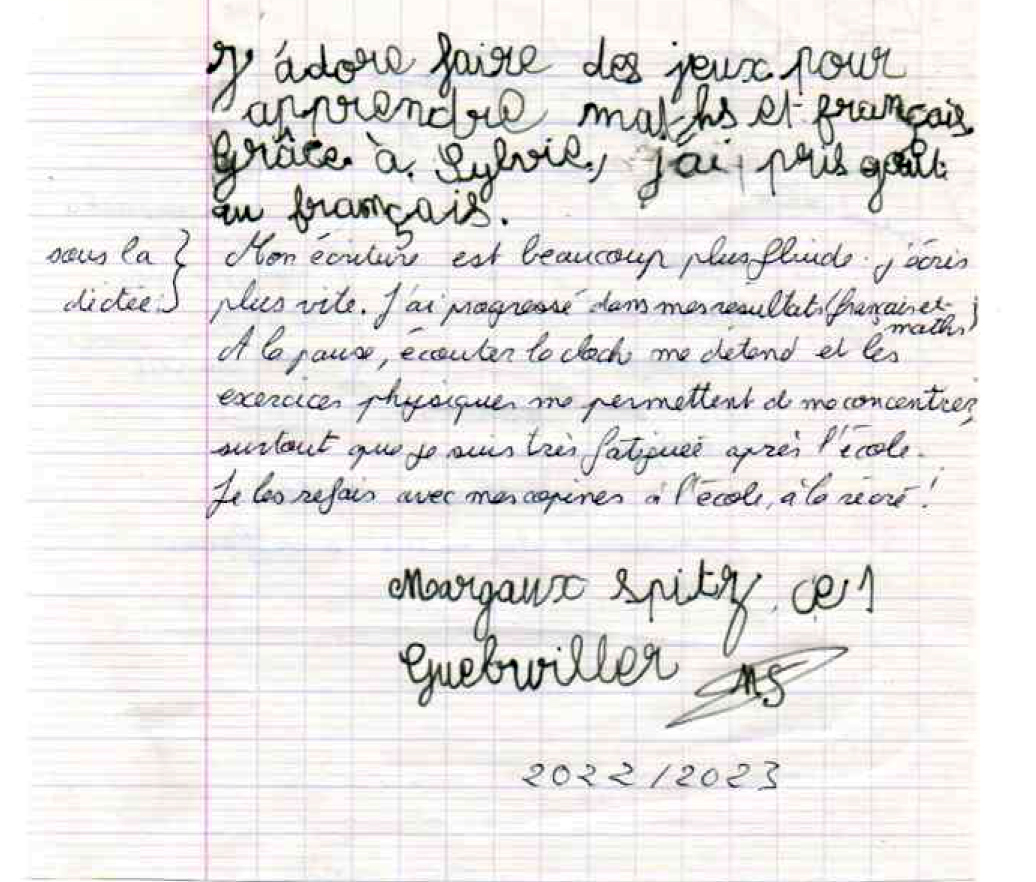 J'adore faire des jeux pour
apprendre maths et français.
Grâce à Sylvie, j'ai pris goût
au français.
sous la dictée : } Mon écriture est beaucoup plus fluide. j'écris
plus vite. J'ai progressé dans mes resultats (français et maths)
A la pause, écouter la cloch me détend et les
exercices physiques me permettent de me concentrer,
surtout que je suis très fatiguée après l'école.
Je les refais avec mes copines à l'école, à la récré !
Margaux Spitz. ce1
Guebwiller MS
2022/2023